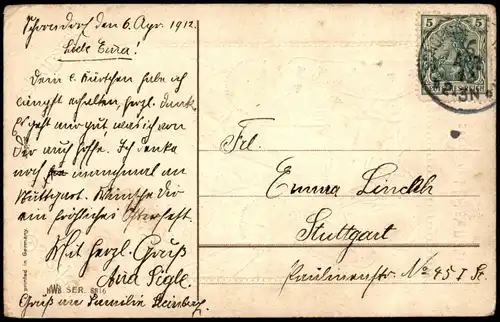 Schorndorf den 6. Apr. 1912.
Liebe Emma!
Dein l. Kärtchen habe ich
erhalten, herzl. Dank.
Es geht mir gut was ich von
Dir auch hoffe. Ich denke
noch manchmal an
Stuttgart. Wünsche Dir
ein fröhliches Osterfest.
Mit herzl. Gruß
Sigle.
Gruß an Familie
5
5
Frl.
Emma
Stuttgart
Paulinenstr. No 45 I St.
printed in Germany.
HWB SER. 8816